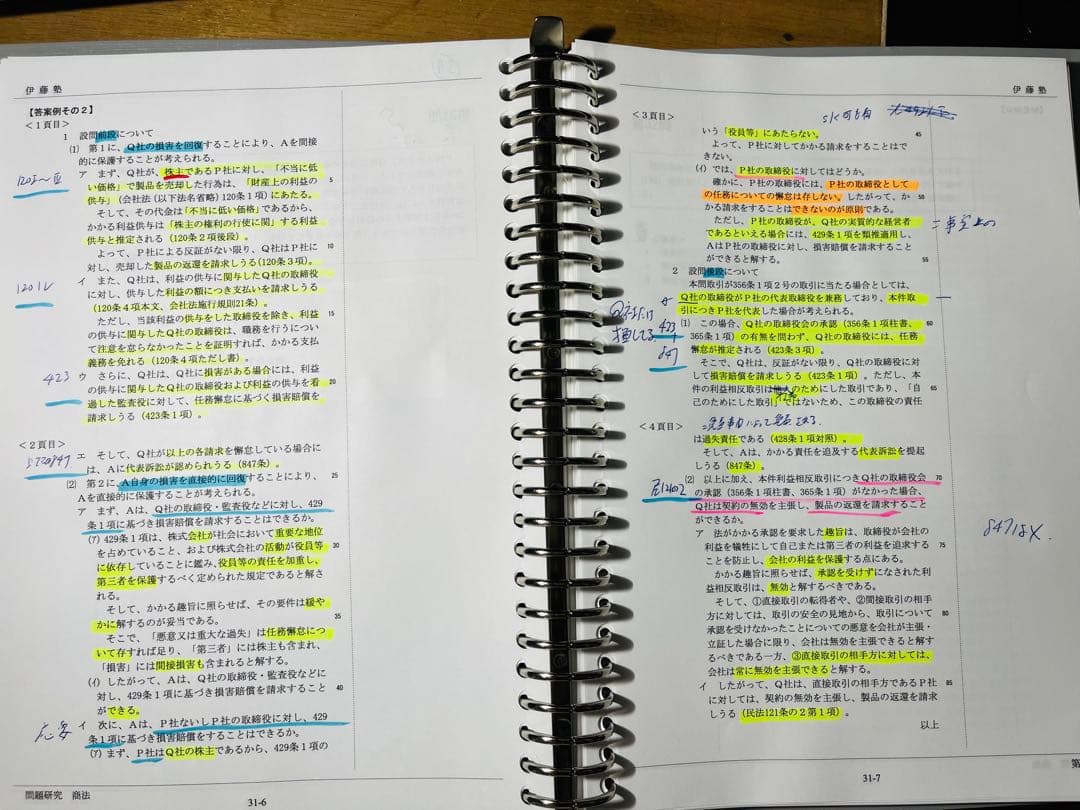 伊藤塾
【答案例その2】
<1頁目>
1 設問前段について
(1) 第1に、Q社の損害を回復することにより、Aを間接
的に保護することが考えられる。
ア まず、Q社が、株主であるP社に対し、「不当に低
い価格」で製品を売却した行為は、「財産上の利益の 5
供与」(会社法(以下法名省略)120条1項)にあたる。
そして、その代金は「不当に低い価格」であるから、
かかる利益供与は「株主の権利の行使に関」する利益
供与と推定される(120条2項後段)。
よって、P社による反証がない限り、Q社はP社に 10
対し、売却した製品の返還を請求しうる(120条3項)。
イ また、Q社は、利益の供与に関与したQ社の取締役
に対し、供与した利益の額につき支払いを請求しうる
(120条4項本文、会社法施行規則21条)。
ただし、当該利益の供与をした取締役を除き、利益 15
の供与に関与したQ社の取締役は、職務を行うについ
て注意を怠らなかったことを証明すれば、かかる支払
義務を免れる(120条4項ただし書)。
423
ウ さらに、Q社は、Q社に損害がある場合には、利益
の供与に関与したQ社の取締役および利益の供与を看 20
過した監査役に対して、任務懈怠に基づく損害賠償を
請求しうる(423条1項)。
<2頁目>
エ そして、Q社が以上の各請求を懈怠している場合に
は、Aに代表訴訟が認められうる(847条)。
(2) 第2に、A自身の損害を直接的に回復することにより、 25
Aを直接的に保護することが考えられる。
ア まず、Aは、Q社の取締役・監査役などに対し、429
条1項に基づき損害賠償を請求することはできるか。
(ア) 429条1項は、株式会社が社会において重要な地位
を占めていること、および株式会社の活動が役員等 30
に依存していることに鑑み、役員等の責任を加重し、
第三者を保護するべく定められた規定であると解さ
れる。
そして、かかる趣旨に照らせば、その要件は緩や
かに解するのが妥当である。 35
そこで、「悪意又は重大な過失」は任務懈怠につい
て存すれば足り、「第三者」には株主も含まれ、
「損害」には間接損害も含まれると解する。
(イ) したがって、Aは、Q社の取締役・監査役などに
対し、429条1項に基づき損害賠償を請求すること 40
ができる。
イ 次に、Aは、P社ないしP社の取締役に対し、429
条1項に基づき損害賠償を請求することはできるか。
(ア) まず、P社はQ社の株主であるから、429条1項の
問題研究 商法
31-6
伊藤塾
<3頁目>
いう「役員等」にあたらない。 45
よって、P社に対してかかる請求をすることはで
きない。
(イ) では、P社の取締役に対してはどうか。
確かに、P社の取締役には、P社の取締役として
の任務についての懈怠は存しない。したがって、か 50
かる請求をすることはできないのが原則である。
ただし、P社の取締役が、Q社の実質的な経営者
であるといえる場合には、429条1項を類推適用し、
AはP社の取締役に対し、損害賠償を請求すること
ができると解する。 55
2 設問後段について
本問取引が356条1項2号の取引に当たる場合としては、
Q社の取締役がP社の代表取締役を兼務しており、本件取
引につきP社を代表した場合が考えられる。
423
847
(1) この場合、Q社の取締役会の承認(356条1項柱書、 60
365条1項)の有無を問わず、Q社の取締役には、任務
懈怠が推定される(423条3項)。
そこで、Q社は、反証がない限り、Q社の取締役に対
して損害賠償を請求しうる(423条1項)。ただし、本
件の利益相反取引は他人のためにした取引であり、「自 65
己のためにした取引」ではないため、この取締役の責任
<4頁目>
は過失責任である(428条1項対照)。
そして、Aは、かかる責任を追及する代表訴訟を提起
しうる(847条)。
(2) 以上に加え、本件利益相反取引につきQ社の取締役会 70
の承認(356条1項柱書、365条1項)がなかった場合、
Q社は契約の無効を主張し、製品の返還を請求すること
ができるか。
847はX.
ア 法がかかる承認を要求した趣旨は、取締役が会社の
利益を犠牲にして自己または第三者の利益を追求する 75
ことを防止し、会社の利益を保護する点にある。
かかる趣旨に照らせば、承認を受けずになされた利
益相反取引は、無効と解するべきである。
そして、①直接取引の転得者や、②間接取引の相手
方に対しては、取引の安全の見地から、取引について 80
承認を受けなかったことについての悪意を会社が主張・
立証した場合に限り、会社は無効を主張できると解す
るべきである一方、③直接取引の相手方に対しては、
会社は常に無効を主張できると解する。
イ したがって、Q社は、直接取引の相手方であるP社 85
に対し、契約の無効を主張し、製品の返還を請求
しうる(民法121条の2第1項)。
以上
31-7
第